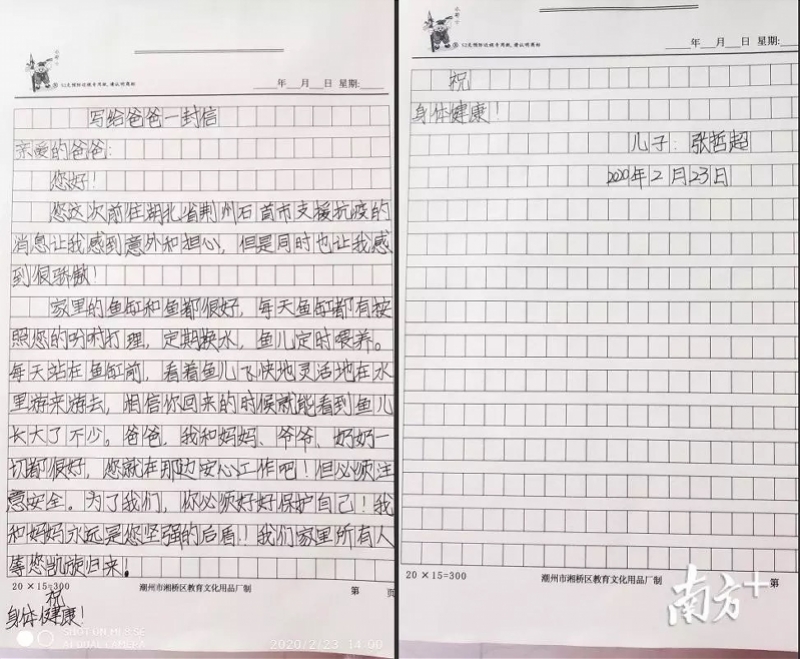 写给爸爸一封信
亲爱的爸爸:
您好!
您这次前往湖北省荆州石首市支援抗疫的
消息让我感到意外和担心,但是同时也让我感
到很骄傲!
家里的鱼缸和鱼都很好,每天鱼缸都有按
照您的吩咐打理,定期换水,鱼儿定时喂养。
每天站在鱼缸前,看着鱼儿飞快地灵活地在水
里游来游去,相信你回来的时候就能看到鱼儿
长大了不少。爸爸,我和妈妈、爷爷、奶奶一
切都很好,您就在那边安心工作吧!但必须注
意安全。为了我们,你必须好好保护自己!我
和妈妈永远是您坚强的后盾!!我们家里所有人
等您凯旋归来!
祝
身体健康!
年 月 日 星期:
20×15=300
潮州市湘桥区教育文化用品厂制
第 页
SHOT ON MI 8 SE
AI DUAL CAMERA
2020/2/23 14:90
年 月 日 星期:
祝
身体健康!
儿子:张哲超
2020年2月23日
20×15=300
潮州市湘桥区教育文化用品厂制
第
南方+